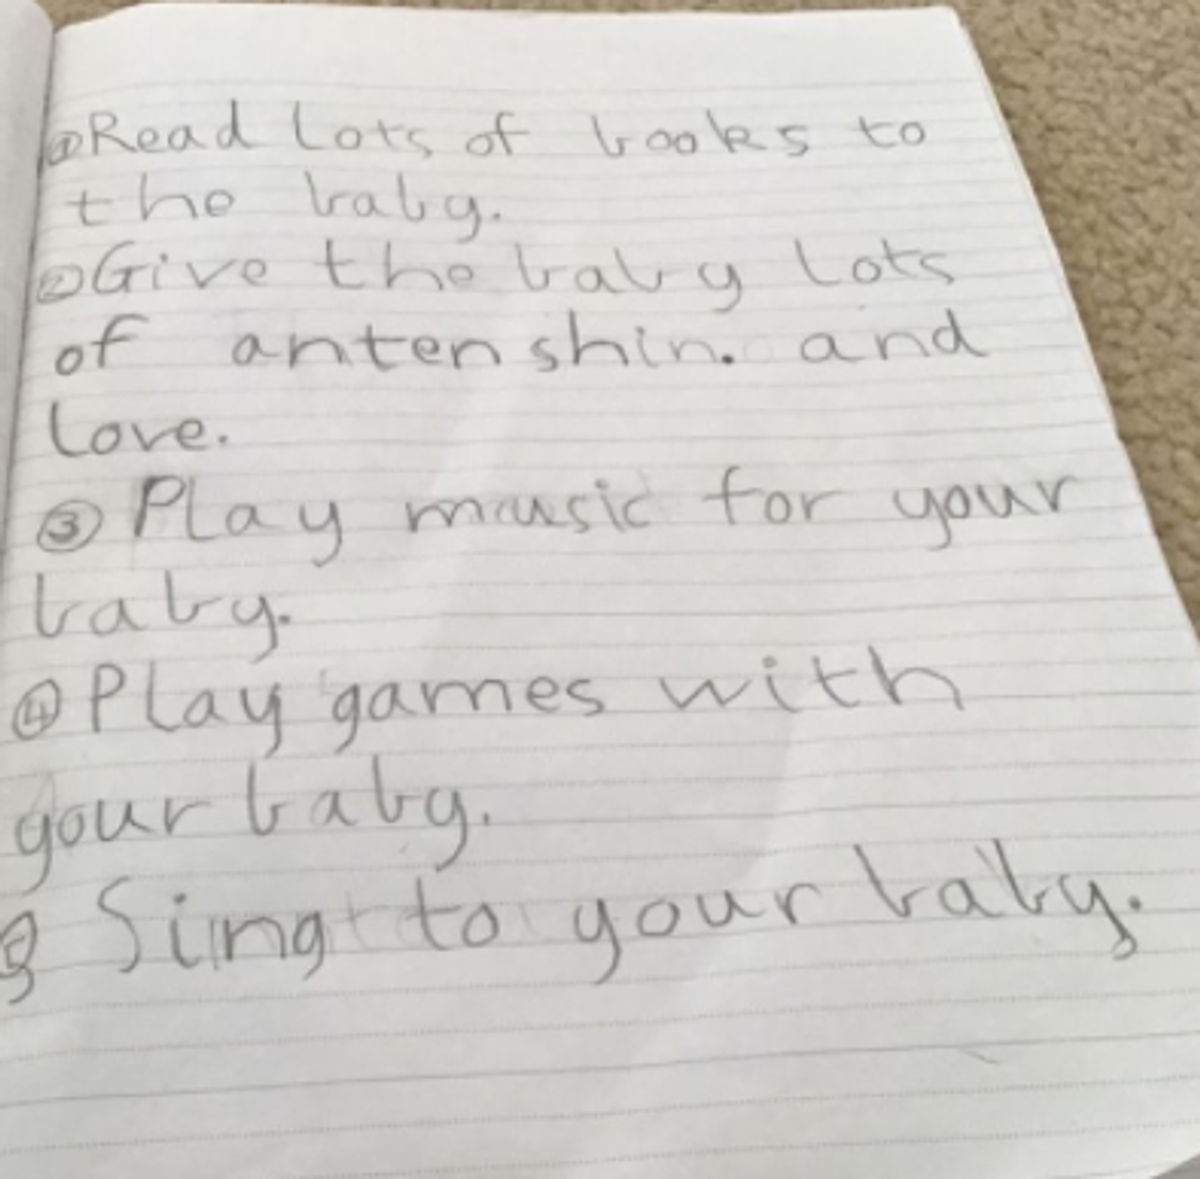 ① Read lots of books to
the baby.
② Give the baby lots
of antenshin. and
love.
③ Play music for your
baby.
④ Play games with
your baby.
⑤ Sing to your baby.